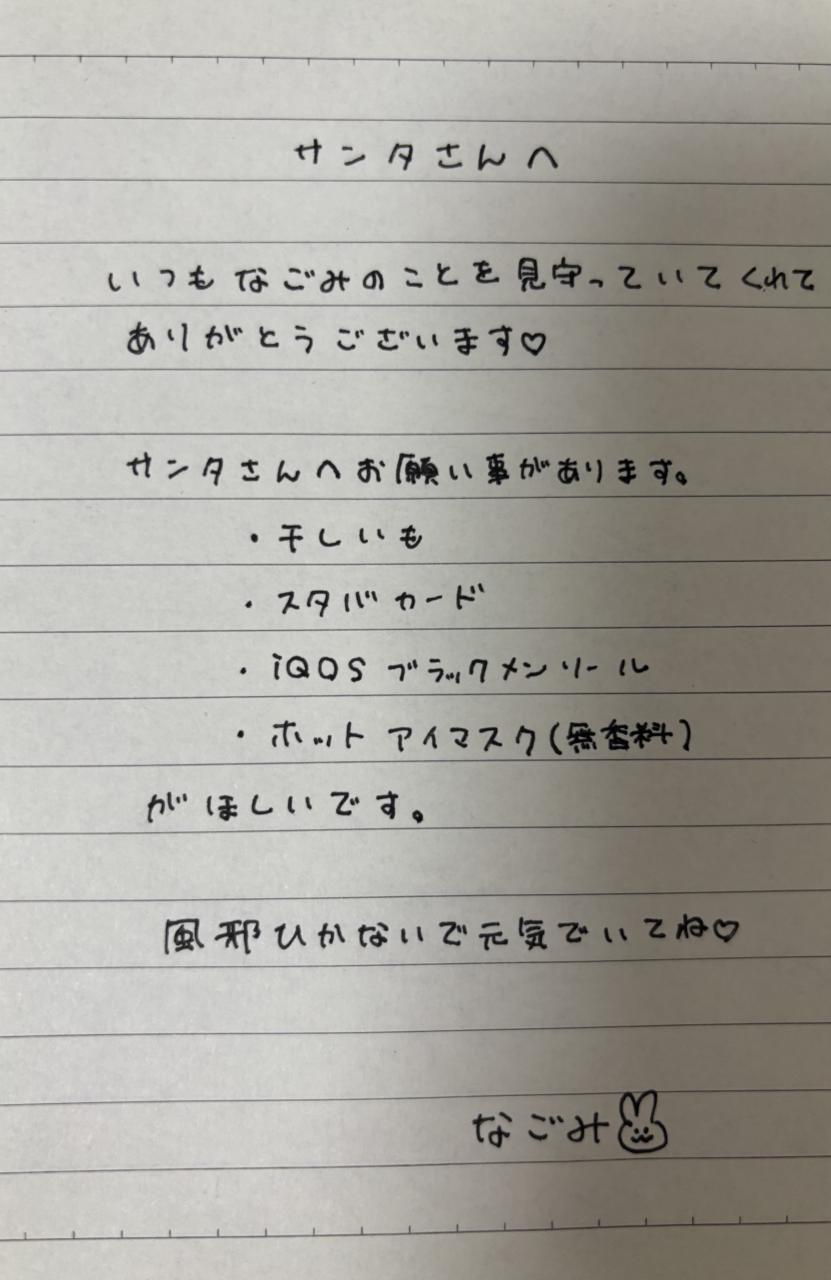 サンタさんへ
いつもなごみのことを見守っていてくれて
ありがとうございます♡
サンタさんへお願い事があります。
・干しいも
・スタバカード
・iQOS ブラックメンソール
・ホットアイマスク(無香料)
がほしいです。
風邪ひかないで元気でいてね♡
なごみ